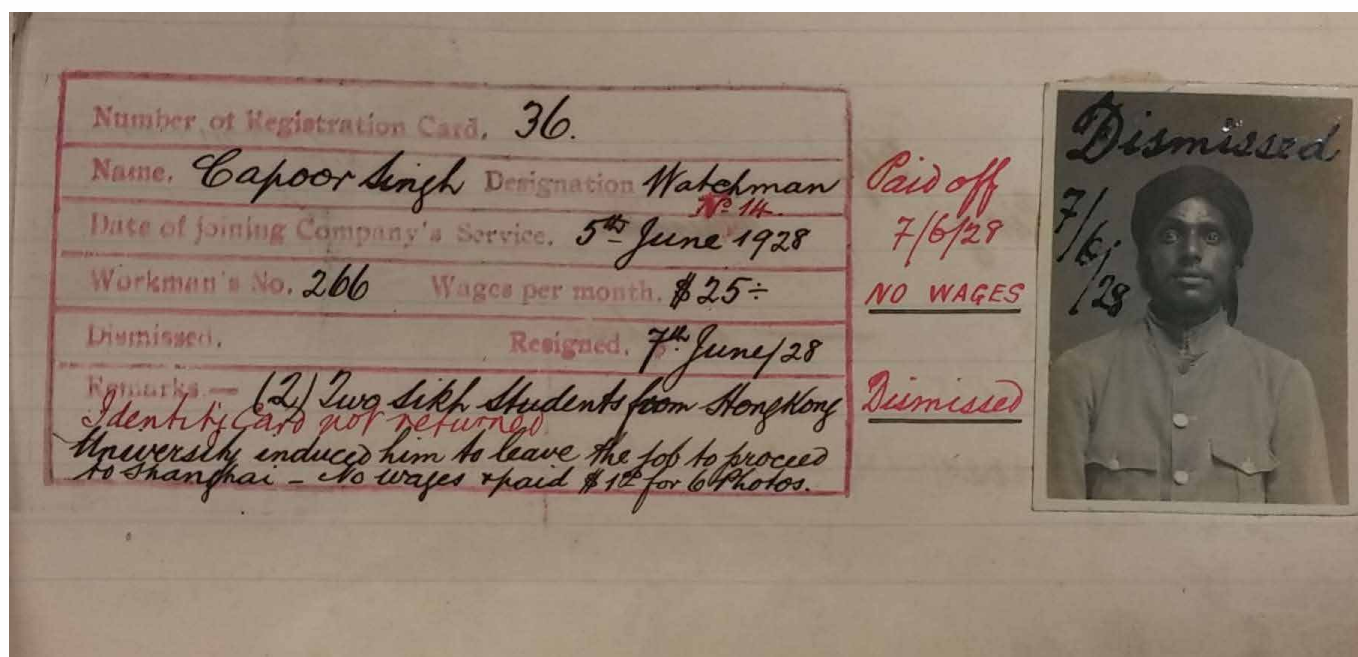 Number of Registration Card. 36.
Name. Capoor Singh Designation Watchman
No 14.
Date of joining Company's Service. 5th June 1928
Workman's No. 266 Wages per month. $25÷
Dismissed. Resigned. 7th June/28
Remarks.— (2) Two Sikh Students from HongKong
Identity Card not returned
University induced him to leave the job to proceed
to Shanghai – No wages & paid $1 for 6 Photos.
Paid off
7/6/28
NO WAGES
Dismissed
Dismissed
7/6/28